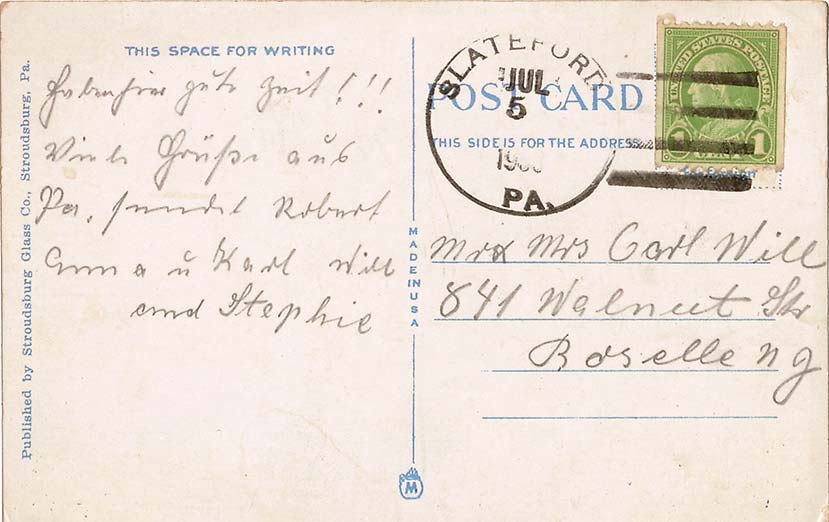 THIS SPACE FOR WRITING
Haben hier gute Zeit!!!
Viele Grüße aus
Pa. sendet Robert
Anna u Karl Will
and Stephie
Published by Stroudsburg Glass Co., Stroudsburg, Pa.
MADE IN USA
M
SLATEFORD
JUL
5
PA.
UNITED STATES POSTAGE
1 CENT 1
POST CARD
THIS SIDE IS FOR THE ADDRESS
Mr & Mrs Carl Will
841 Walnut Str
Roselle N J